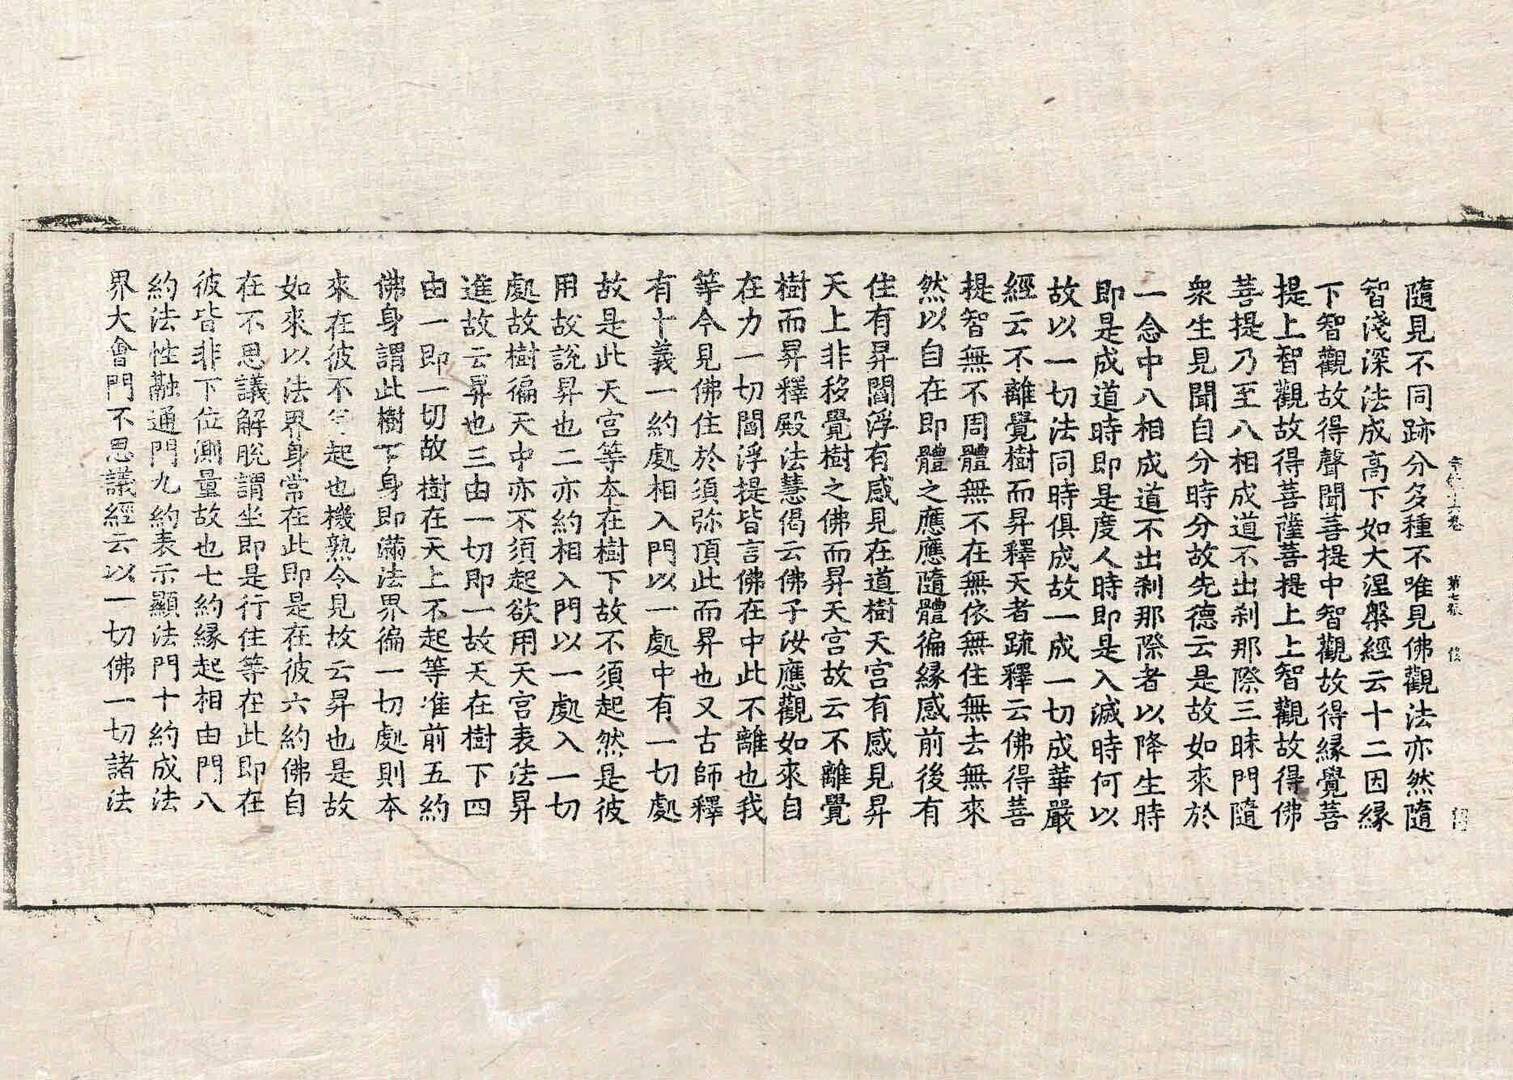 隨見不同跡分多種不唯見佛觀法亦然隨
智淺深法成高下如大涅槃經云十二因緣
下智觀故得聲聞菩提中智觀故得緣覺菩
提上智觀故得菩薩菩提上上智觀故得佛
菩提乃至八相成道不出刹那際三昧門隨
衆生見聞自分時分故先德云是故如來於
一念中八相成道不出刹那際者以降生時
即是成道時即是度人時即是入滅時何以
故以一切法同時俱成故一成一切成華嚴
經云不離覺樹而昇釋天者疏釋云佛得菩
提智無不周體無不在無依無住無去無來
然以自在即體之應應隨體徧緣感前後有
住有昇閻浮有感見在道樹天宮有感見昇
天上非移覺樹之佛而昇天宮故云不離覺
樹而昇釋殿法慧偈云佛子汝應觀如來自
在力一切閻浮提皆言佛在中此不離也我
等今見佛住於須弥頂此而昇也又古師釋
有十義一約處相入門以一處中有一切處
故是此天宮等本在樹下故不須起然是彼
用故說昇也二亦約相入門以一處入一切
處故樹徧天中亦不須起欲用天宮表法昇
進故云昇也三由一切即一故天在樹下四
由一即一切故樹在天上不起等准前五約
佛身謂此樹下身即滿法界徧一切處則本
來在彼不起也機熟令見故云昇也是故
如來以法界身常在此即是在彼六約佛自
在不思議解脫謂坐即是行住等在此即在
彼皆非下位測量故也七約緣起相由門八
約法性融通門九約表示顯法門十約成法
界大會門不思議經云以一切佛一切諸法
第七張